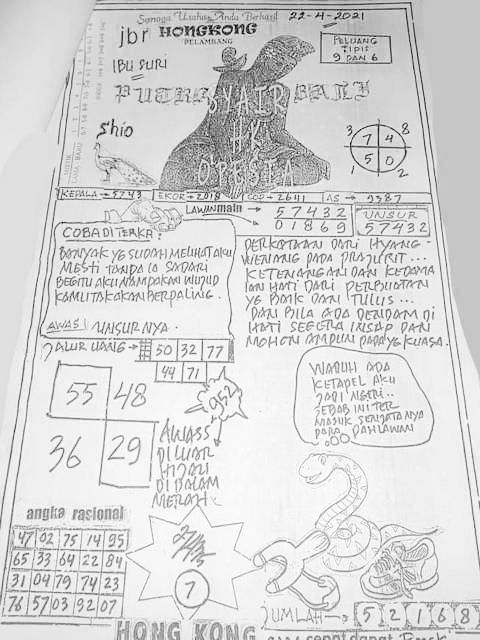 Semoga Usaha Anda Berhasil
22-4-2021
jbr HONGKONG
PELAMBANG
PELUANG
TIPIS
9 DAN 6
IBU SURI
PUTRA BALI
SYAIR
HK
OPESTA
Shio
3 7 4 8
1 5 0 2
KEPALA → 5743 EKOR → 2018 COP → 2641 AS → 9387
LAWAN main → 57432
01869
UNSUR
57432
COBA DITERKA:
BANYAK YG SUDAH MELIHAT AKU
MESTI TANPA IA SADARI
BEGITU AKU NAMPAKAN WUJUD
KAMU TAKAKAN BERPALING.
AWAS! UNSURNYA.
PERKATAAN DARI HYANG-
WENANG PADA PRAJURIT...
KETENANGAN DAN KEDAMA
IAN HATI DARI PERBUATAN
YG BAIK DAN TULUS...
DAN BILA ADA DENDAM DI
HATI SEGERA INSAP DAN
MOHON AMPUN PADA YG KUASA.
JALUR UANG → 50 32 77
44 71
952
55 48
36 29
AWASS
DILUAR
HIJAU
DI DALAM
MERAH
WADUH ADA
KETAPEL AKU
JADI NGERI..
SEBAB INI TER
MASUK SENJATANYA
PARA PAHLAWAN
angka rasional
47 02 75 14 95
65 33 64 22 84
31 04 79 74 23
76 57 03 92 07
7
JUMLAH → 5 2 1 6 8
HONG KONG